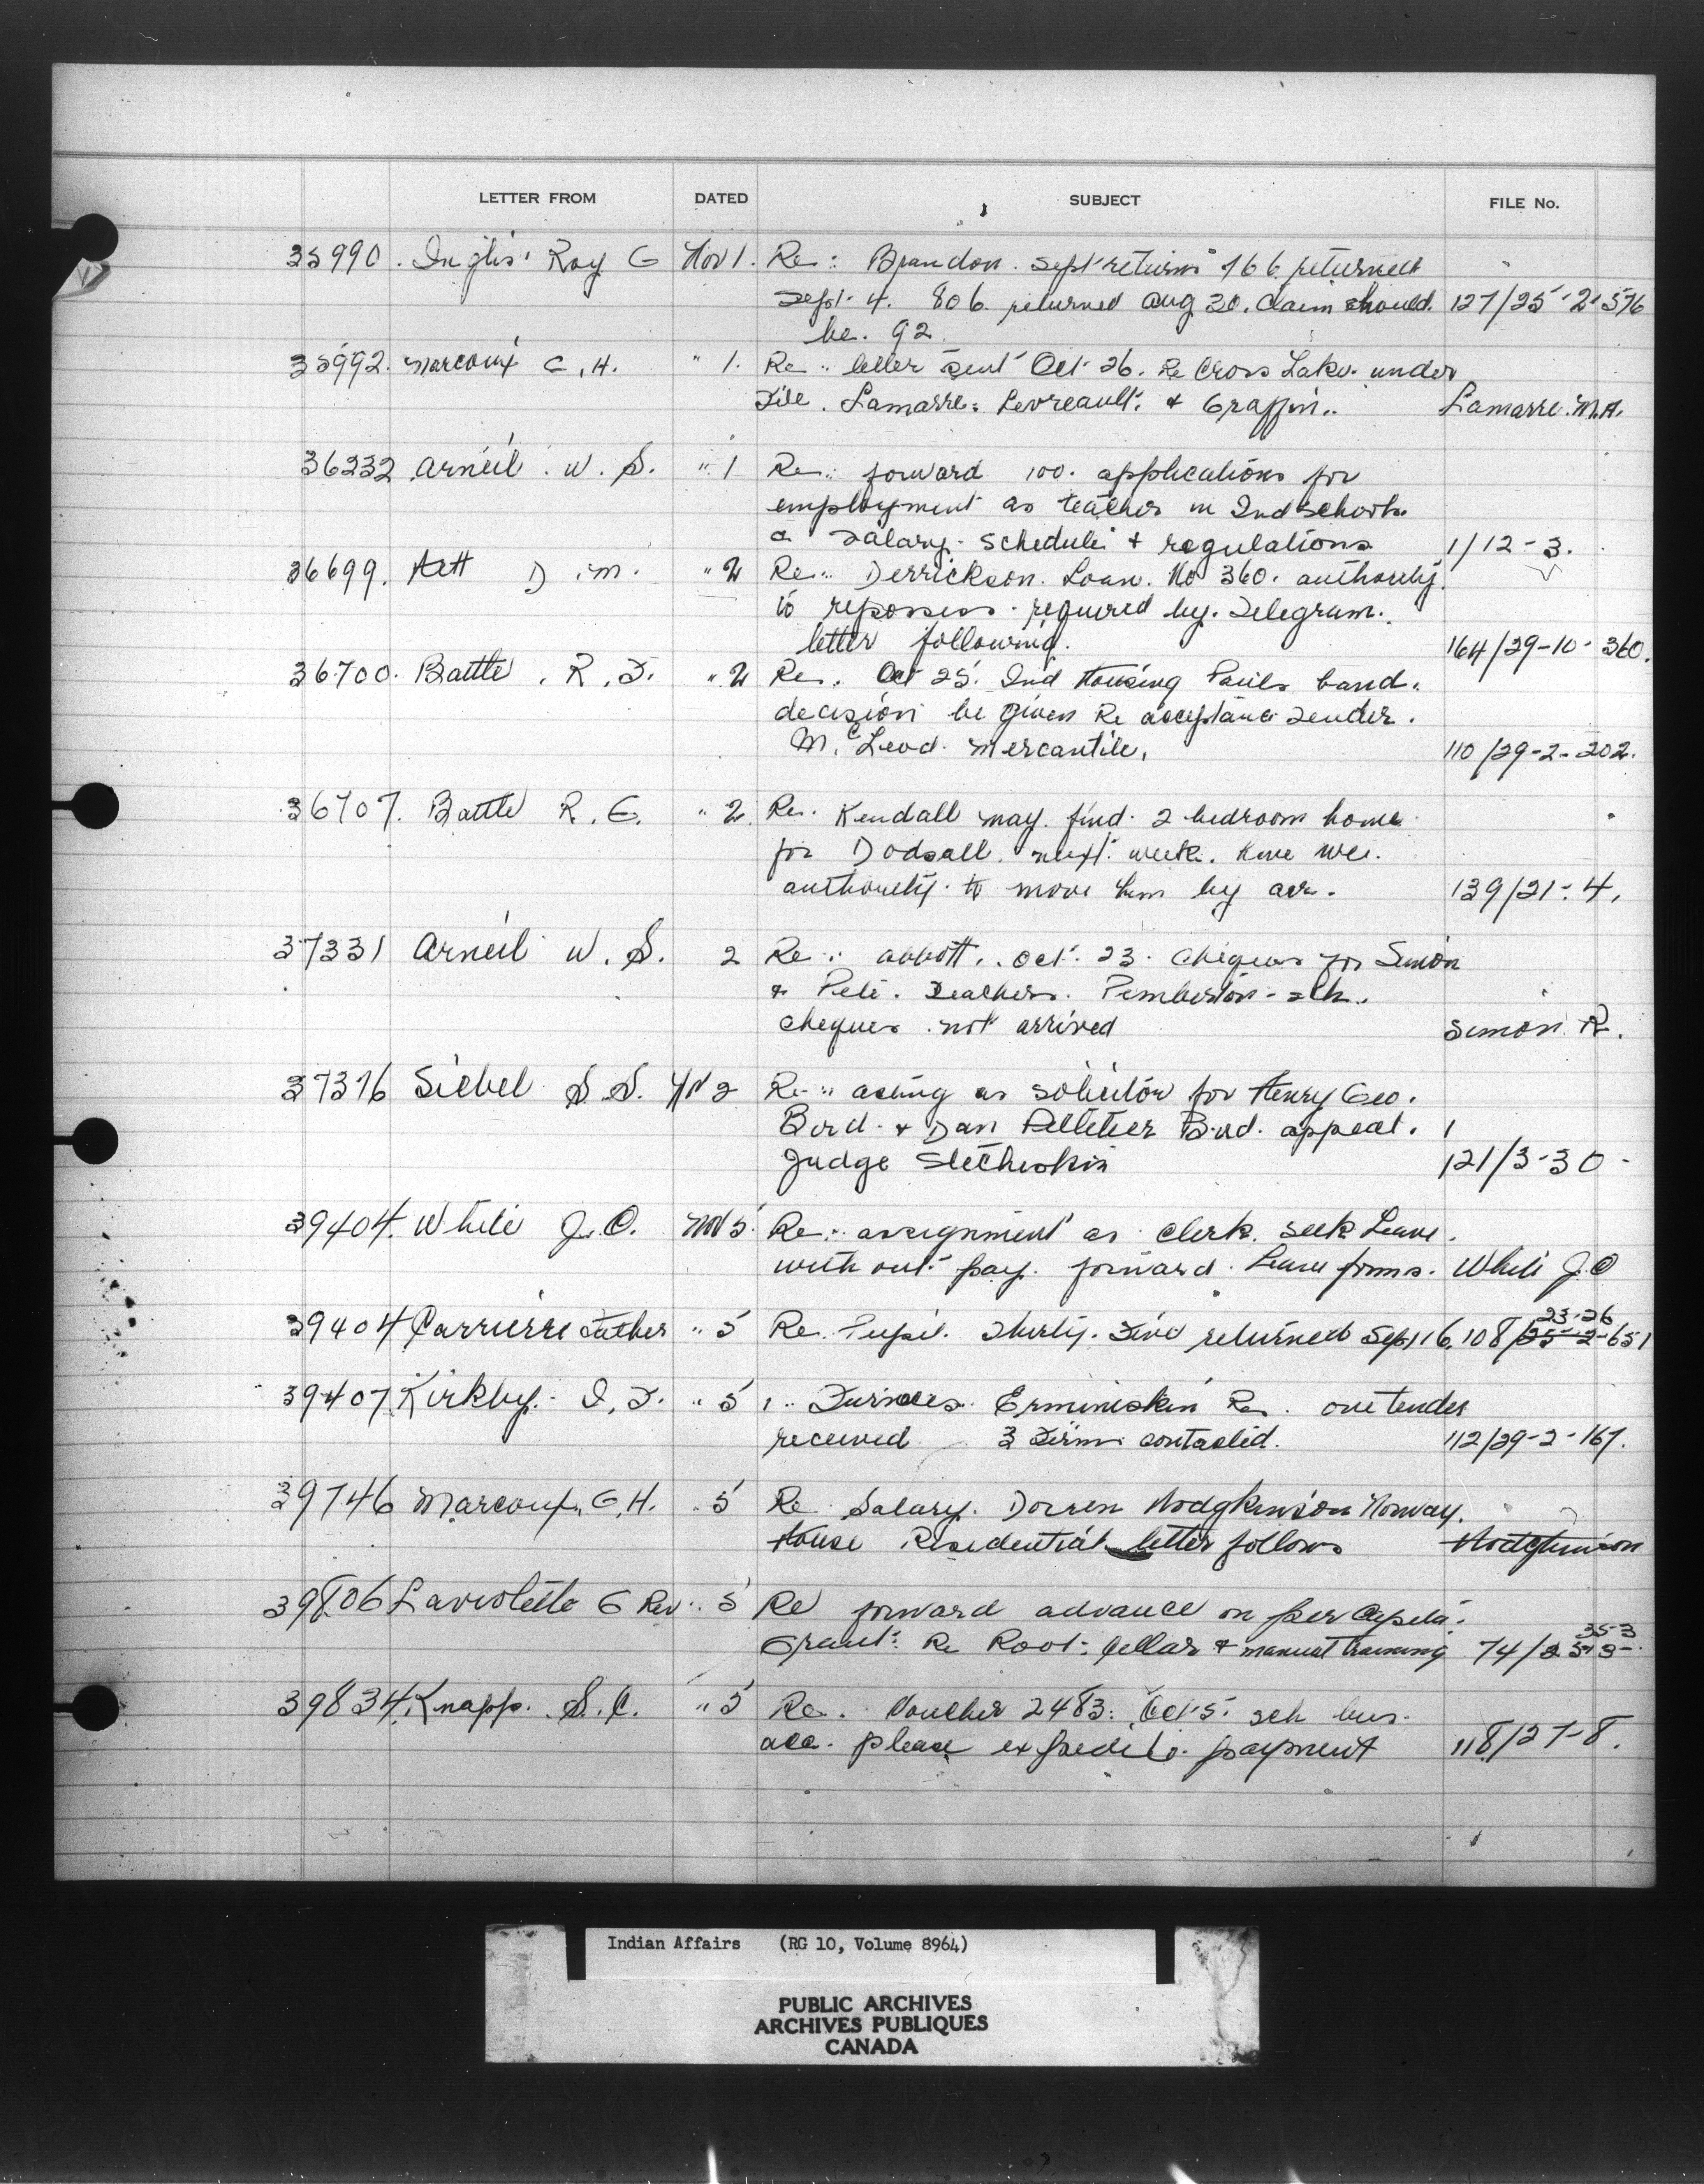 LETTER FROM DATED SUBJECT FILE No.
35990. Inglis Roy G Nov 1. Re: Brandon. Sept returns 766 returned
Sept. 4. 806 returned Aug 30. Claim should. 127/25-2-576
be. 92.
35992. Marcoux G.H. " 1. Re: letter sent Oct 26. Re Cross Lake. under
File. Lamarre: Levreault: & Graffin.. Lamarre. M.A.
36232 Arneil. W. S. " 1 Re: forward 100. applications for
employment as teacher in Ind schools
a salary. schedule & regulations 1/12-3.
36699. Aett D.M. " 2 Re: Derrickson. Loan. No 360. authority.
to repossess. required by. Telegram.
letter following. 164/29-10-360.
36700. Battle. R. F. " 2 Re. Oct 25. Ind Housing Pauls band.
decision be given Re acceptance Tender.
McLeod. Mercantile. 110/29-2-202.
36707. Battle R. G. " 2 Re. Kendall may. find. 2 bedroom home
for Dodsall. next. week. have we.
authority. to move him by air. 139/21-4.
37331 Arneil W. S. 2 Re: abbott.. Oct. 23. cheques for Simon
& Pete. Teachers. Pemberton-sch.
cheques. not arrived Simon R.
37376 Siebel S. S. Nov 2 Re: acting as solicitor for Henry Geo.
Bird. & Dan Pelletier Bird. appeal.
Judge 121/3-30-
39404. White J. O. Nov 5. Re: assignment as clerk. seek Leave.
without. pay. forward. Leave forms. White J.O
39404 Carriere Father " 5 Re. Pupil. Shirley. returned Sept 16. 108/25-2-651
23-26
39407 Kirkby. I. F. " 5 " Furnaces. Ermineskin Res. one tender
received 3 Firms contacted. 112/29-2-167.
39746 Marcoux. G.H. " 5 Re Salary. Dorren Hodgkinson Norway.
House Residential letter follows Hodgkinson
39806 Laviolette G Rev. " 5 Re forward advance on per capita.
Grant: Re Root. Cellar & manual training 74/25-3-
35-3
39834. Knapp. S. C. " 5 Re. Voucher 2483. Oct 5. sch bus.
acc. please expedite. payment 118/27-8.
Indian Affairs (RG 10, Volume 8964)
PUBLIC ARCHIVES
ARCHIVES PUBLIQUES
CANADA